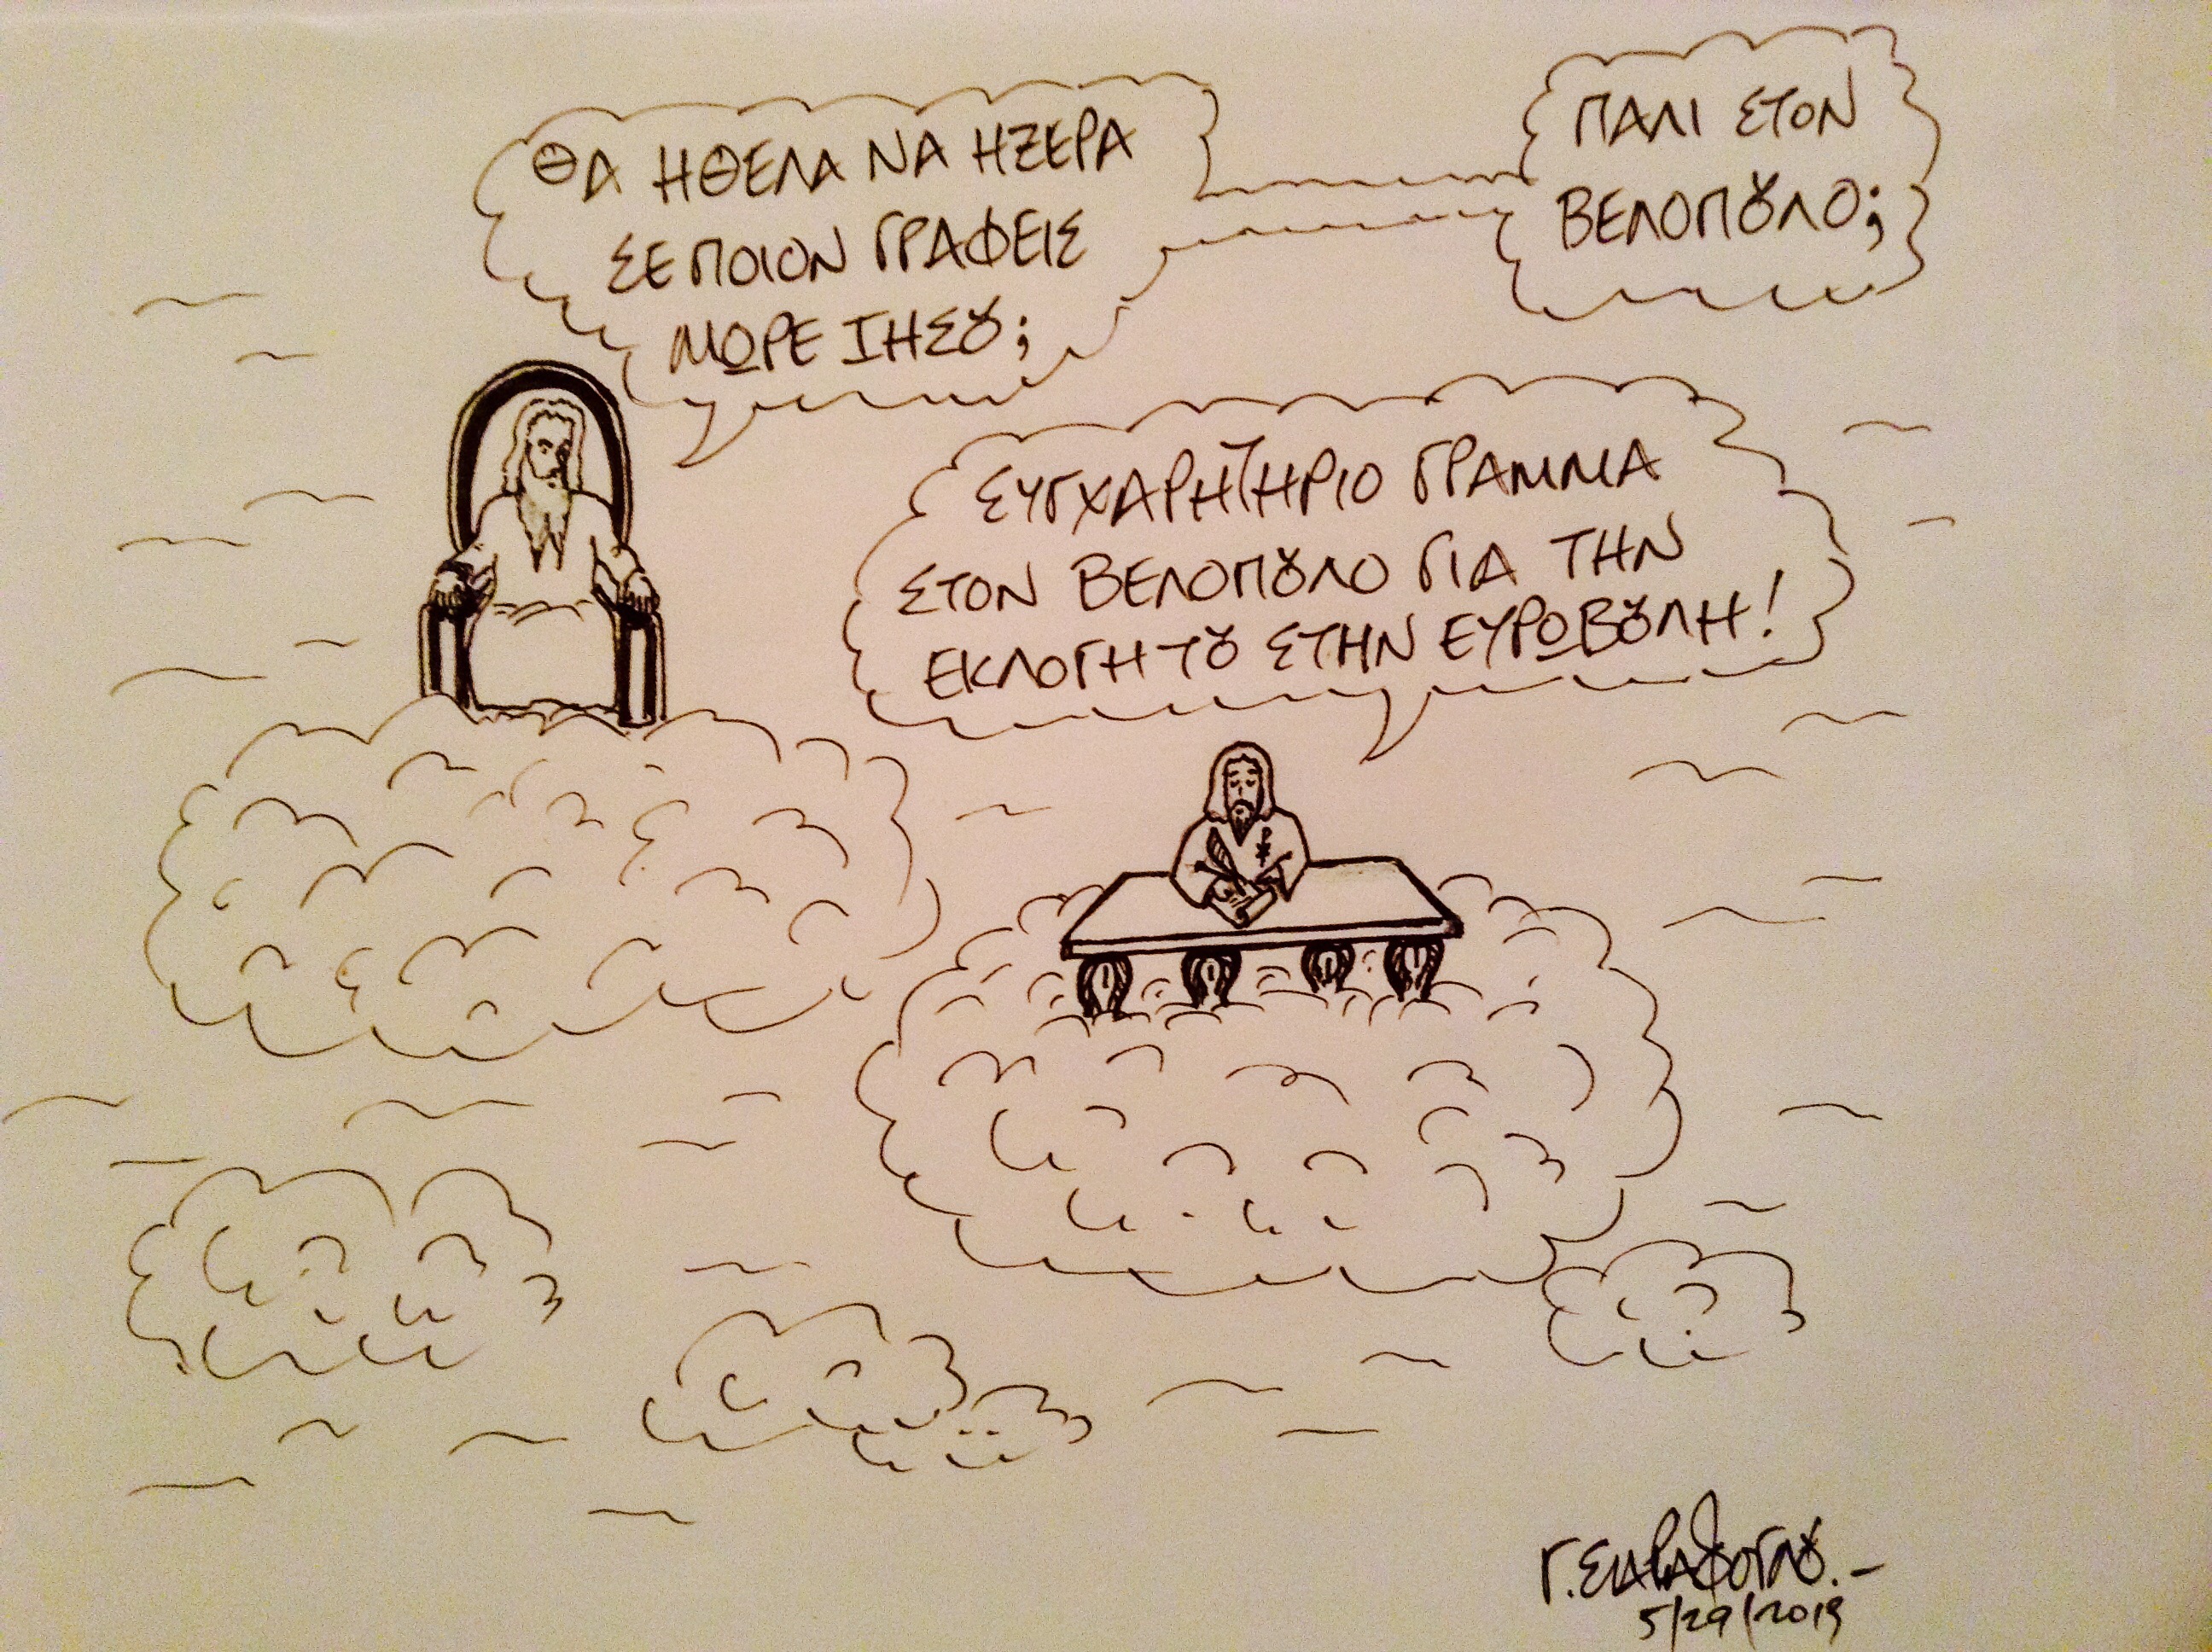 ΘΑ ΗΘΕΛΑ ΝΑ ΗΞΕΡΑ
ΣΕ ΠΟΙΟΝ ΓΡΑΦΕΙΣ
ΜΩΡΕ ΙΗΣȢ;
ΠΑΛΙ ΣΤΟΝ
ΒΕΛΟΠȢΛΟ;
ΣΥΓΧΑΡΗΤΗΡΙΟ ΓΡΑΜΜΑ
ΣΤΟΝ ΒΕΛΟΠȢΛΟ ΓΙΑ ΤΗΝ
ΕΚΛΟΓΗ ΤȢ ΣΤΗΝ ΕΥΡΩΒȢΛΗ!
5/29/2019